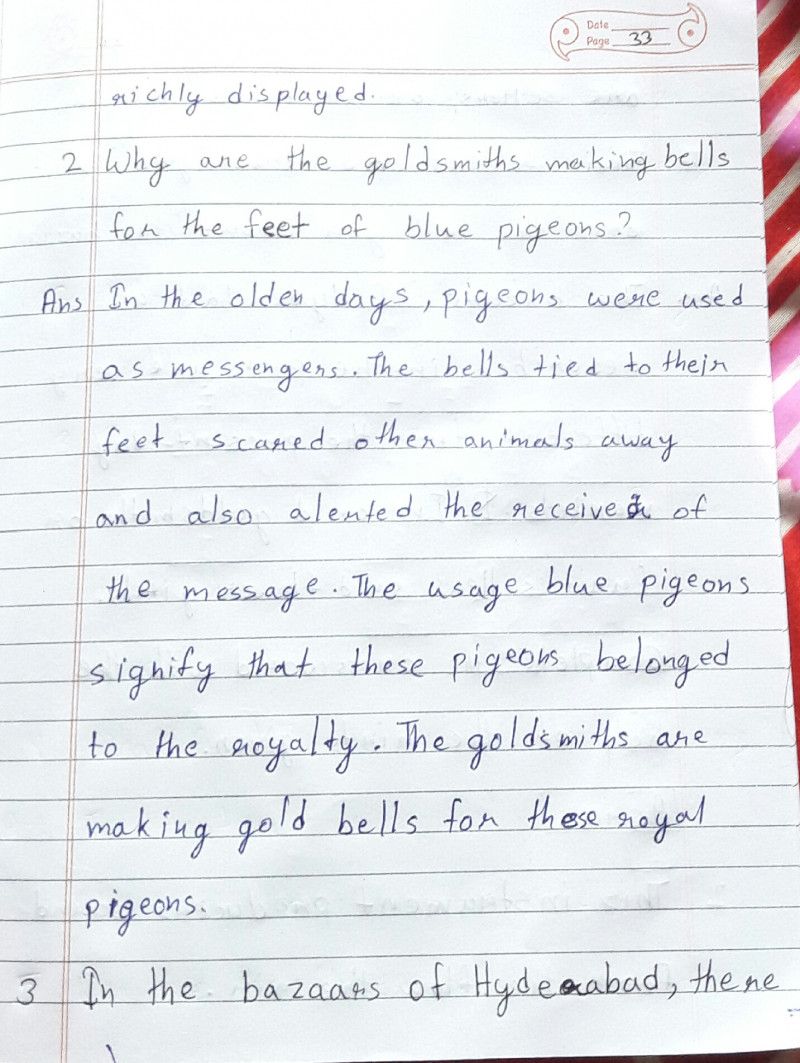 Date
Page 33
richly displayed.
2 Why are the goldsmiths making bells
for the feet of blue pigeons?
Ans In the older days, pigeons were used
as messengers. The bells tied to their
feet scared other animals away
and also alerted the receiver of
the message. The usage blue pigeons
signify that these pigeons belonged
to the royalty. The goldsmiths are
making gold bells for these royal
pigeons.
3 In the bazaars of Hyderabad, there